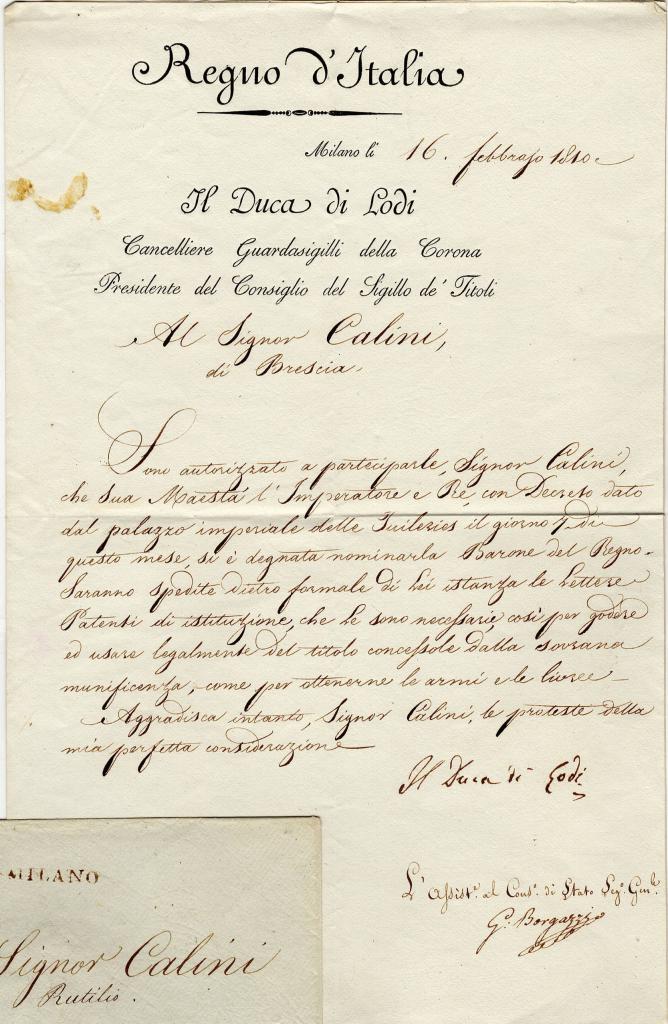 Regno d'Italia
Milano li 16. febbrajo 1810.
Il Duca di Lodi
Cancelliere Guardasigilli della Corona
Presidente del Consiglio del Sigillo de' Titoli
Al Signor Calini,
di Brescia.
Sono autorizzato a parteciparle, Signor Calini,
che Sua Maestà l'Imperatore e Re, con Decreto dato
dal palazzo imperiale delle Tuileries il giorno di
questo mese, si è degnata nominarla Barone del Regno.
Saranno spedite dietro formale di Lei istanza le Lettere
Patenti di istituzione, che Le sono necessarie, così per godere
ed usare legalmente del titolo concessole dalla sovrana
munificenza, come per ottenerne le armi e le livree.
Aggradisca intanto, Signor Calini, le proteste della
mia perfetta considerazione
Il Duca di Lodi
L'Assist.e al Cons.o di Stato Seg.o Gen.le
G. Borgazzi
MILANO
Signor Calini
Rutilio.